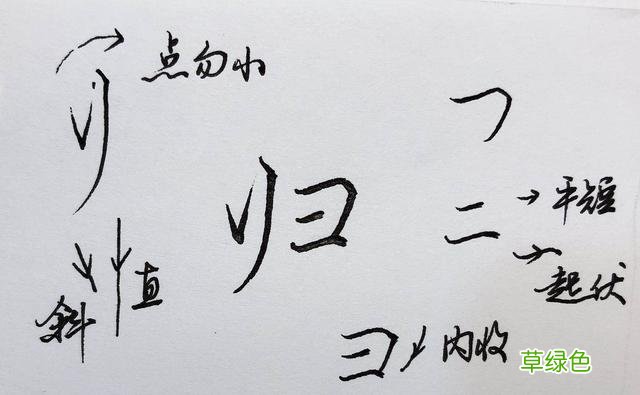 点勿小
归
平短
起伏
斜
直
内收
草绿色